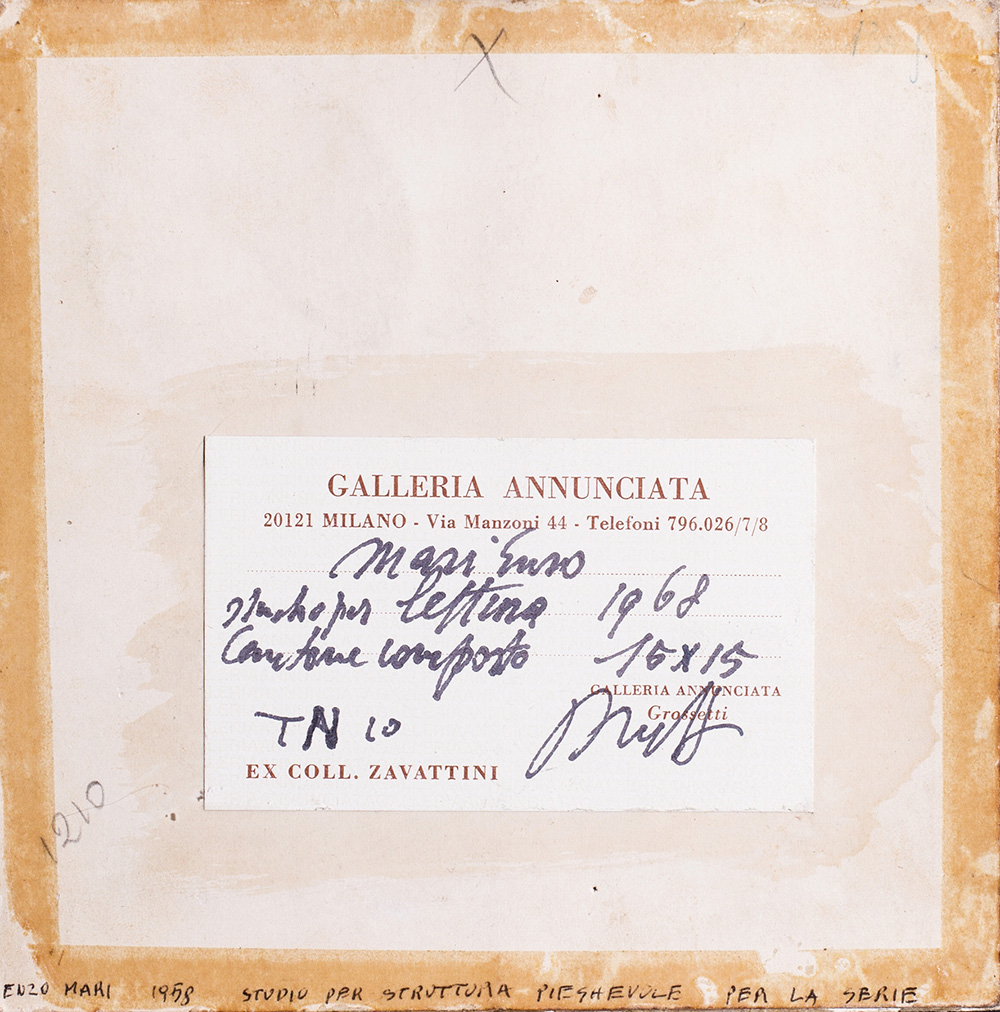 X
GALLERIA ANNUNCIATA
20121 MILANO - Via Manzoni 44 - Telefoni 796.026/7/8
Mari Enzo
studio per 1968
composto 15x15
GALLERIA ANNUNCIATA
Grossetti
TN 10
EX COLL. ZAVATTINI
1210
ENZO MARI 1958 STUDIO PER STRUTTURA PIEGHEVOLE PER LA SERIE